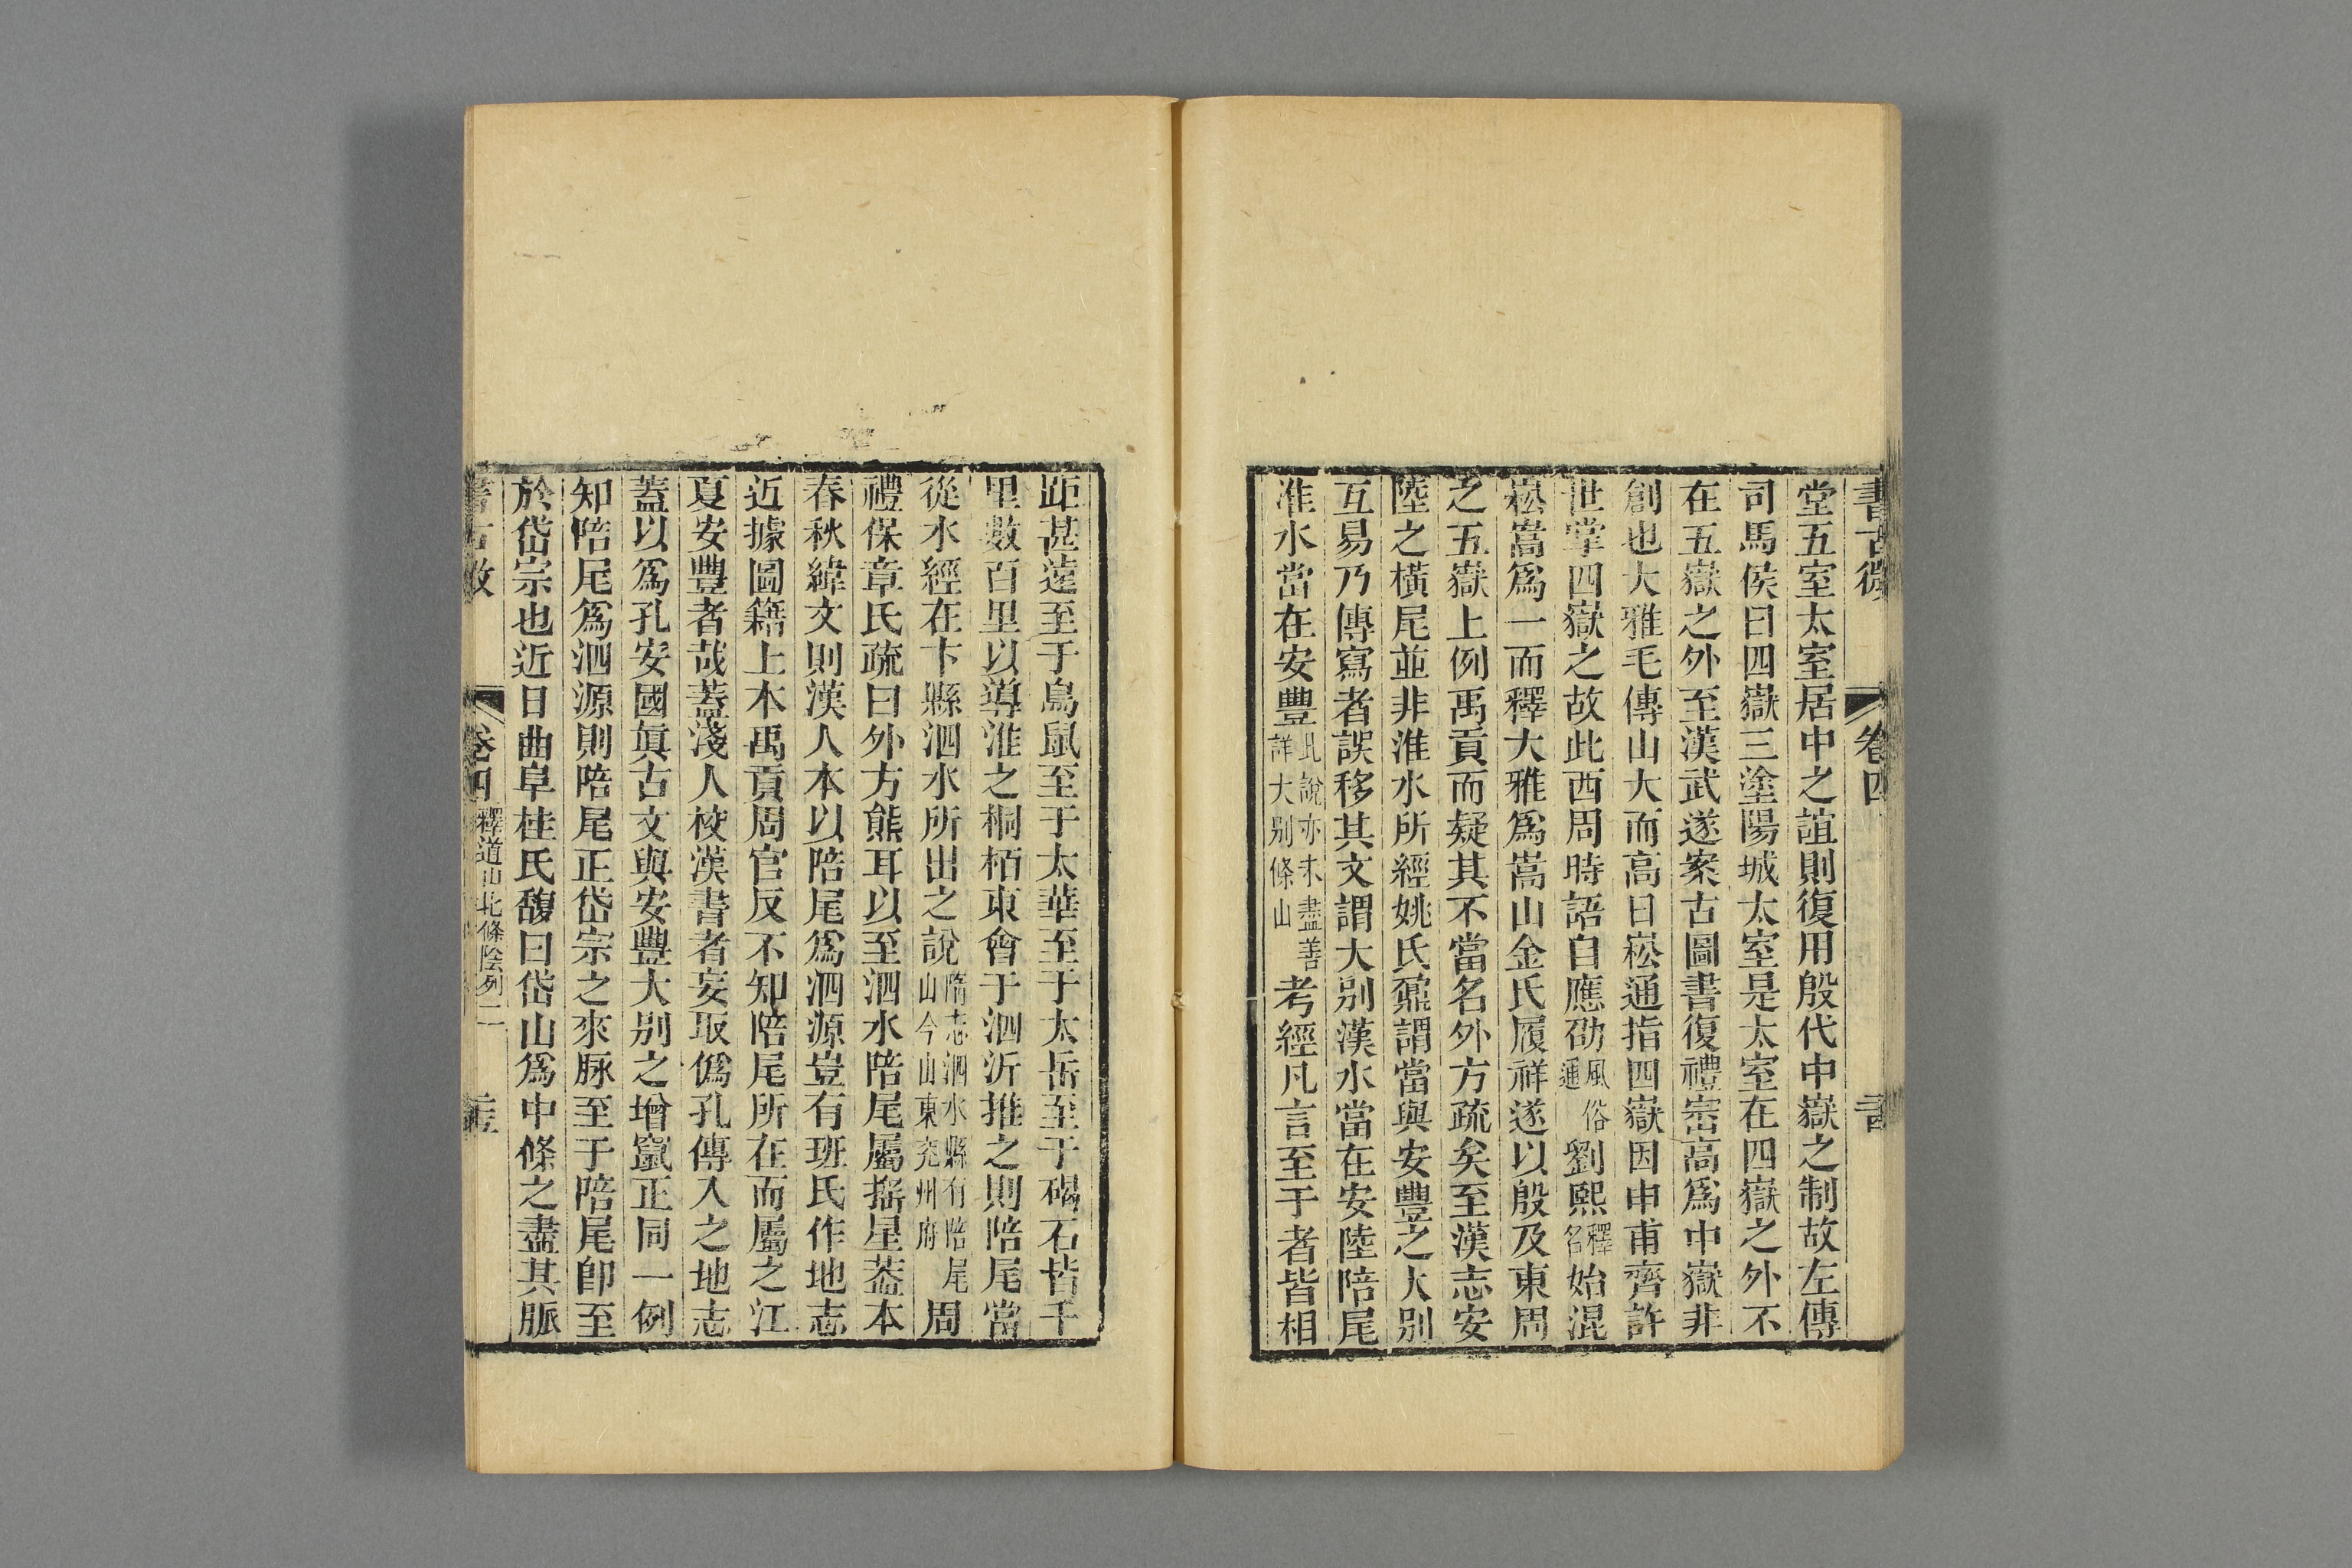 書古微 卷四 書
堂五室太室居中之誼則復用殷代中嶽之制故左傳
司馬侯曰四嶽三塗陽城太室是太室在四嶽之外不
在五嶽之外至漢武遂案古圖書復禮崈高爲中嶽非
創也大雅毛傳山大而高曰崧通指四嶽因申甫齊許
世掌四嶽之故此西周時語自應劭風俗通劉熙釋名始混
崧嵩爲一而釋大雅爲嵩山金氏履祥遂以殷及東周
之五嶽上例禹貢而疑其不當名外方疏矣至漢志安
陸之橫尾並非淮水所經姚氏鼐謂當與安豐之大别
互易乃傳寫者誤移其文謂大别漢水當在安陸陪尾
淮水當在安豐此說亦未盡善詳大别條山考經凡言至于者皆相
距甚遠至于鳥鼠至于太華至于太岳至于碣石皆千
里數百里以導淮之桐栢東會于泗沂推之則陪尾當
從水經在卞縣泗水所出之說隋志泗水縣有陪尾山今山東兖州府周
禮保章氏疏曰外方熊耳以至泗水陪尾屬搖星葢本
春秋緯文則漢人本以陪尾爲泗源豈有班氏作地志
近據圖籍上本禹貢周官反不知陪尾所在而屬之江
夏安豐者哉蓋淺人校漢書者妄取僞孔傳入之地志
蓋以爲孔安國眞古文與安豐大别之增竄正同一例
知陪尾爲泗源則陪尾正岱宗之來脉至于陪尾卽至
於岱宗也近日曲阜桂氏馥曰岱山爲中條之盡其脈
書古微 卷四 釋道山北條陰列二